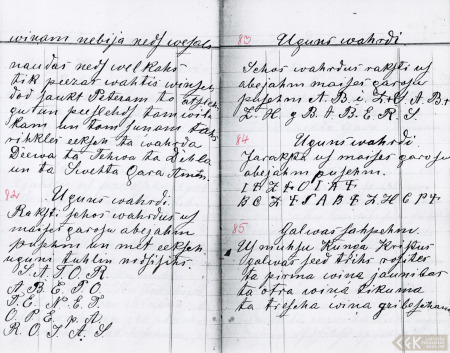 winam nebija nedſ weſels
naudas nedſ welkahs
tik peezas wahtis
ded ſankt Peteram to atſleh
gu un
kam un tom ſunam
rihkles eekſch ta wahrda
Deewa ta Tehwa ta Dehla
un ta Swehta Gara Amen.
82 Uguns wahrdi.
Rakſti ſchos wahrdus uſ
maiſes garoſu abejahm
puſchm un met eekſch
uguni tuhlin nodſiſihs.
S. A T O R
A R E P O
T E N E T
O P E R A
R O T A S
83 Uguns wahrdi
Schos wahrdus rakſti uſ
abejahm maiſes garoſu
puſehm A. B. i. Z + G A. B +
Z. H. g B A B. E R S.
84 Uguns wahrdi.
Jaraksta uſ maiſes garoſu
abejahm puſehm.
I F Z + O I A F
B C Z F S A B F Z H C P F
85 Galwas ſahpehm.
Uſ muhſu Kunga Kriſtus
galwas ſeed trihs roſites
ta pirma wina jauniba
ta otra wina tikuma
ta treſcha wina gribeſchana